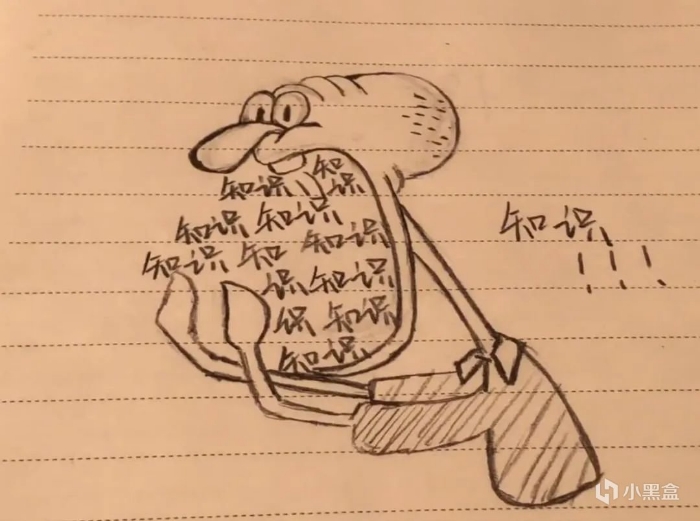 知识 知识
知识 知识
知识 知 知识
识 知识
识 知识
知识
知识
!!!
小黑盒